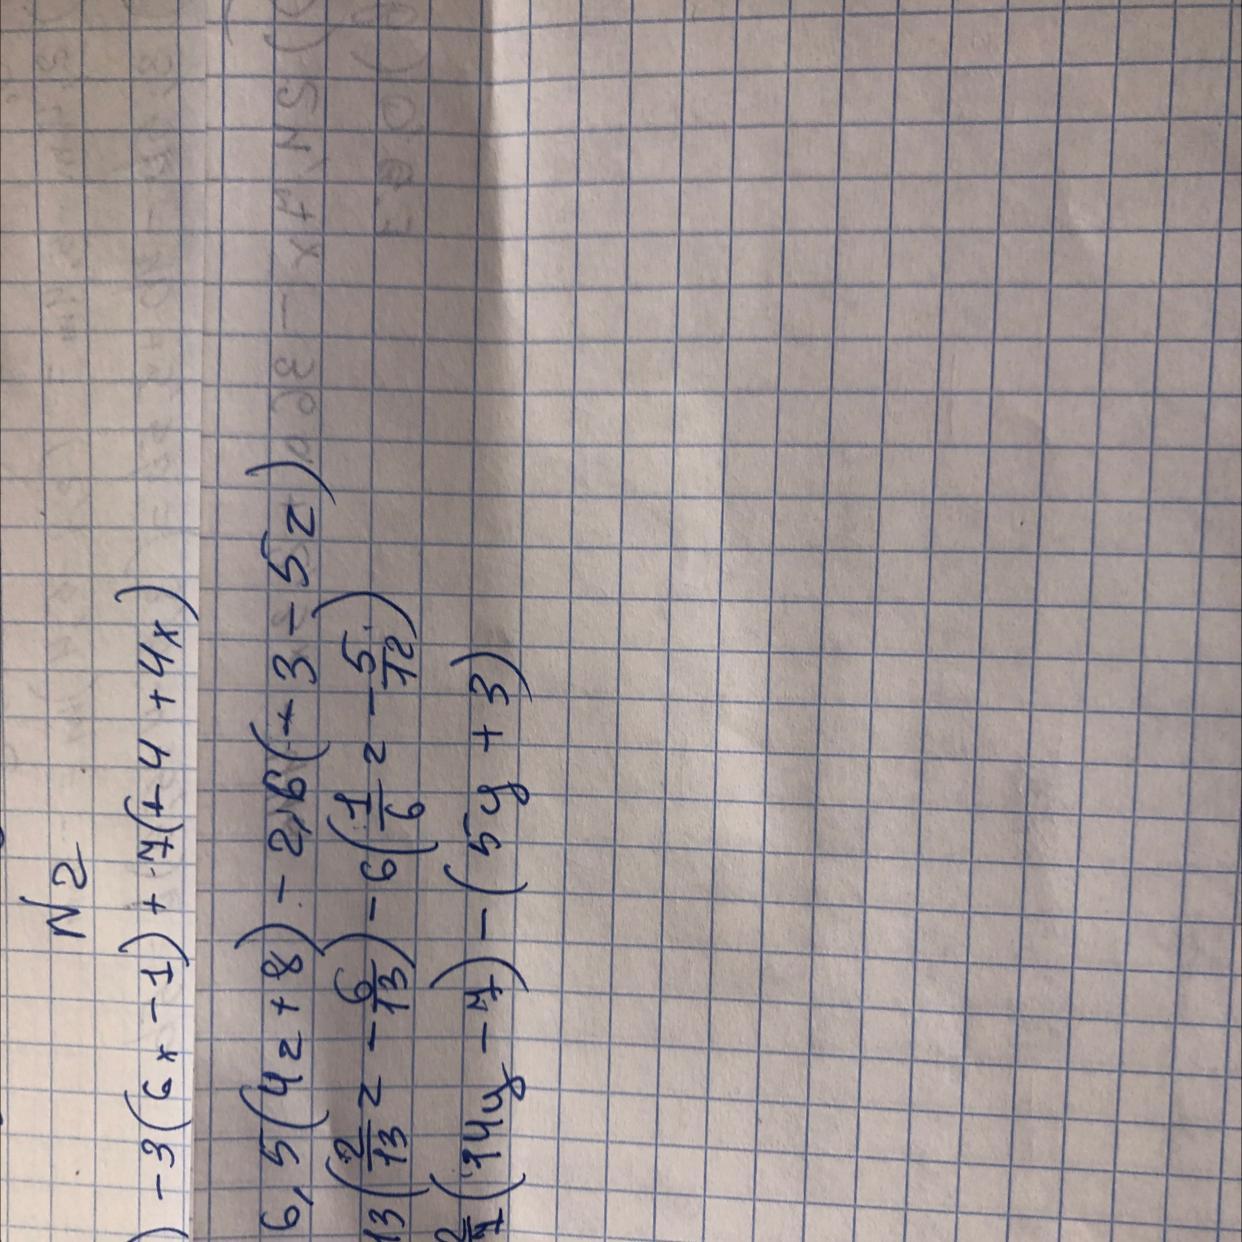 N2
) - 3(6x - 1) + 7(+4 + 4x)
6,5(4z + 8) - 2,6(+3 - 5z)
13(2/13 z - 6/13) - 6(1/6 z - 5/12)
2/7(14y - 7) - (5y + 3)